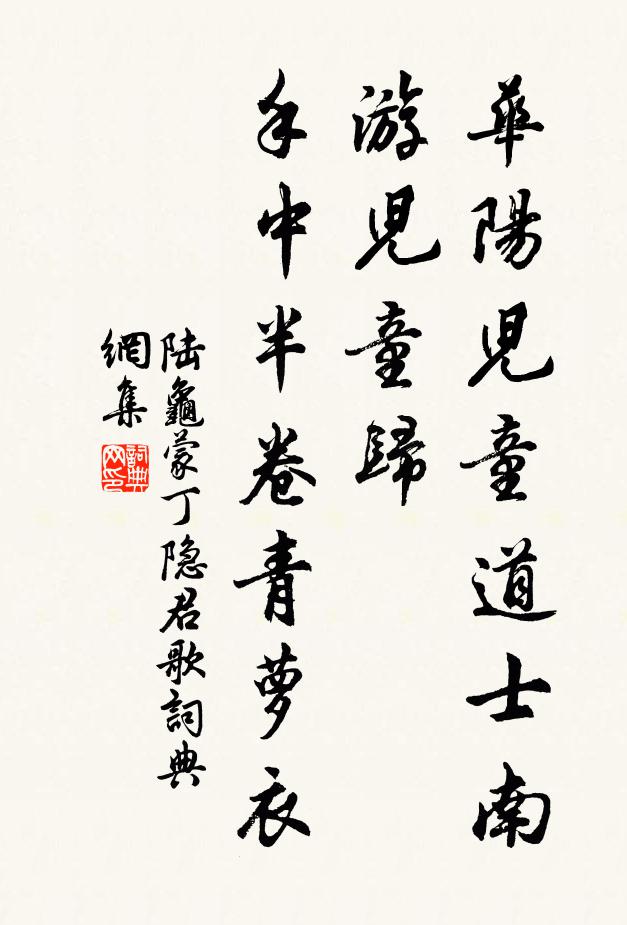 華陽兒童道士南
游兒童歸
手中半卷青蘿衣
陆龜蒙丁隐君歌詞典
網集
詞典网印